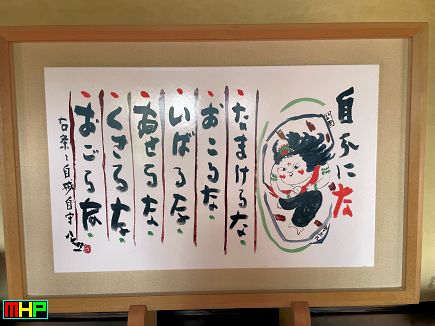 自分に な
なまけるな
おこるな
いばるな
あせるな
くさるな
おごるな
右条々自戒自守
MHP